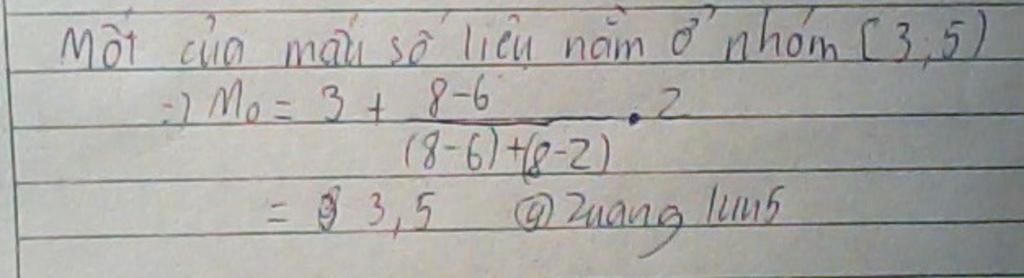 Mốt của mẫu số liệu nằm ở nhóm [3;5)
=> Mo = 3 + (8-6)/((8-6)+(8-2)) . 2
= 3,5 @Zuang luu5